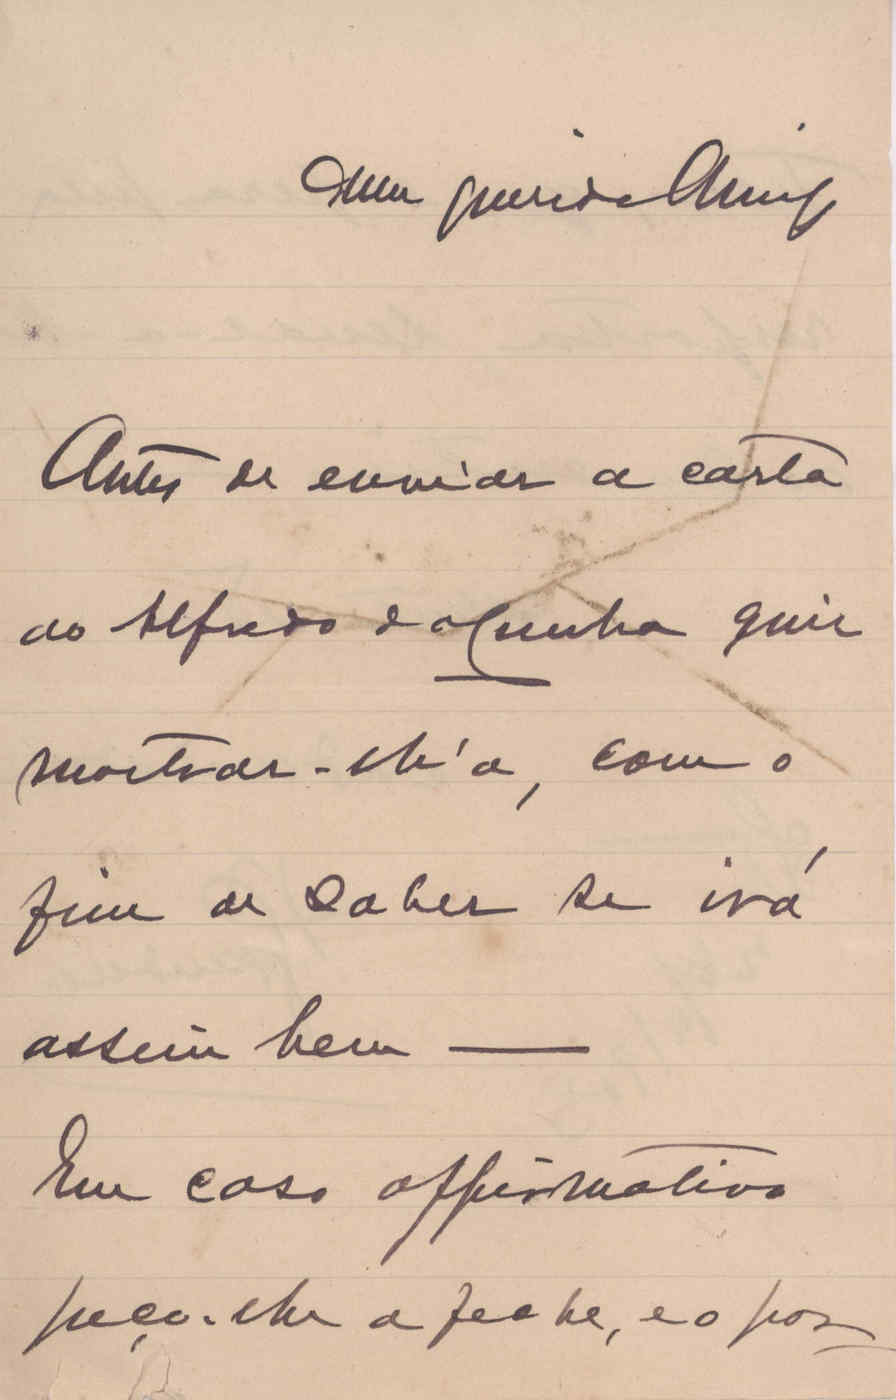 Meu querido Amigo
Antes de enviar a carta
ao Alfredo da Cunha quis
mostrar-lh'a, com o
fim de saber se irá
assim bem —
Em caso affirmativo
peço-lhe a feche, e o por